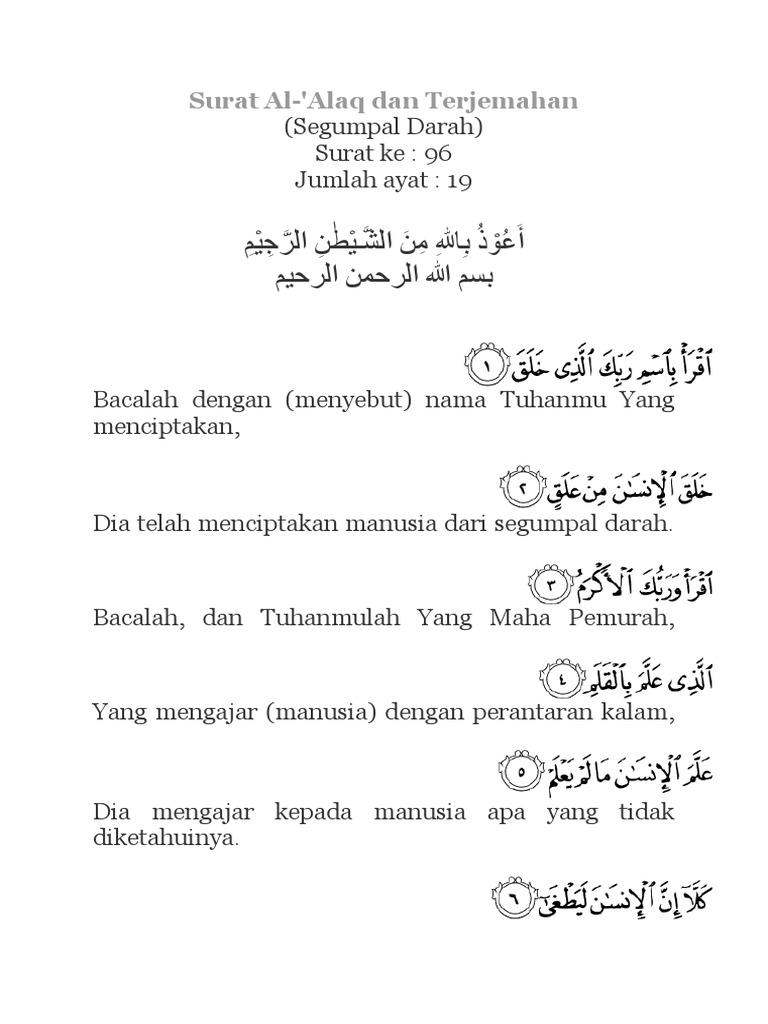 Surat Al-'Alaq dan Terjemahan
(Segumpal Darah)
Surat ke : 96
Jumlah ayat : 19
أَعُوْذُ بِاللهِ مِنَ الشَّيْطٰنِ الرَّجِيْمِ
بسم الله الرحمن الرحيم
ٱقْرَأْ بِٱسْمِ رَبِّكَ ٱلَّذِى خَلَقَ ١
Bacalah dengan (menyebut) nama Tuhanmu Yang
menciptakan,
خَلَقَ ٱلْإِنسَٰنَ مِنْ عَلَقٍ ٢
Dia telah menciptakan manusia dari segumpal darah.
ٱقْرَأْ وَرَبُّكَ ٱلْأَكْرَمُ ٣
Bacalah, dan Tuhanmulah Yang Maha Pemurah,
ٱلَّذِى عَلَّمَ بِٱلْقَلَمِ ٤
Yang mengajar (manusia) dengan perantaran kalam,
عَلَّمَ ٱلْإِنسَٰنَ مَا لَمْ يَعْلَمْ ٥
Dia mengajar kepada manusia apa yang tidak
diketahuinya.
كَلَّآ إِنَّ ٱلْإِنسَٰنَ لَيَطْغَىٰٓ ٦